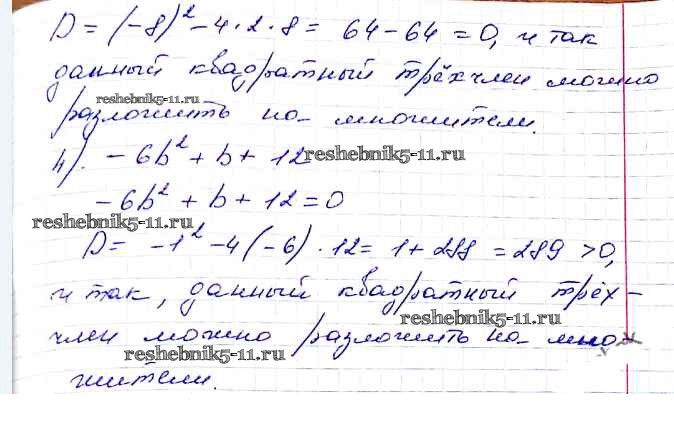 D = (-8)² - 4·2·8 = 64 - 64 = 0, и так
данный квадратный трёхчлен можно
reshebnik5-11.ru
разложить на множители.
4). -6b² + b + 12
reshebnik5-11.ru
-6b² + b + 12 = 0
reshebnik5-11.ru
D = -1² - 4(-6)·12 = 1 + 288 = 289 > 0,
и так, данный квадратный трёх-
reshebnik5-11.ru
член можно разложить на мно-
reshebnik5-11.ru
жители.